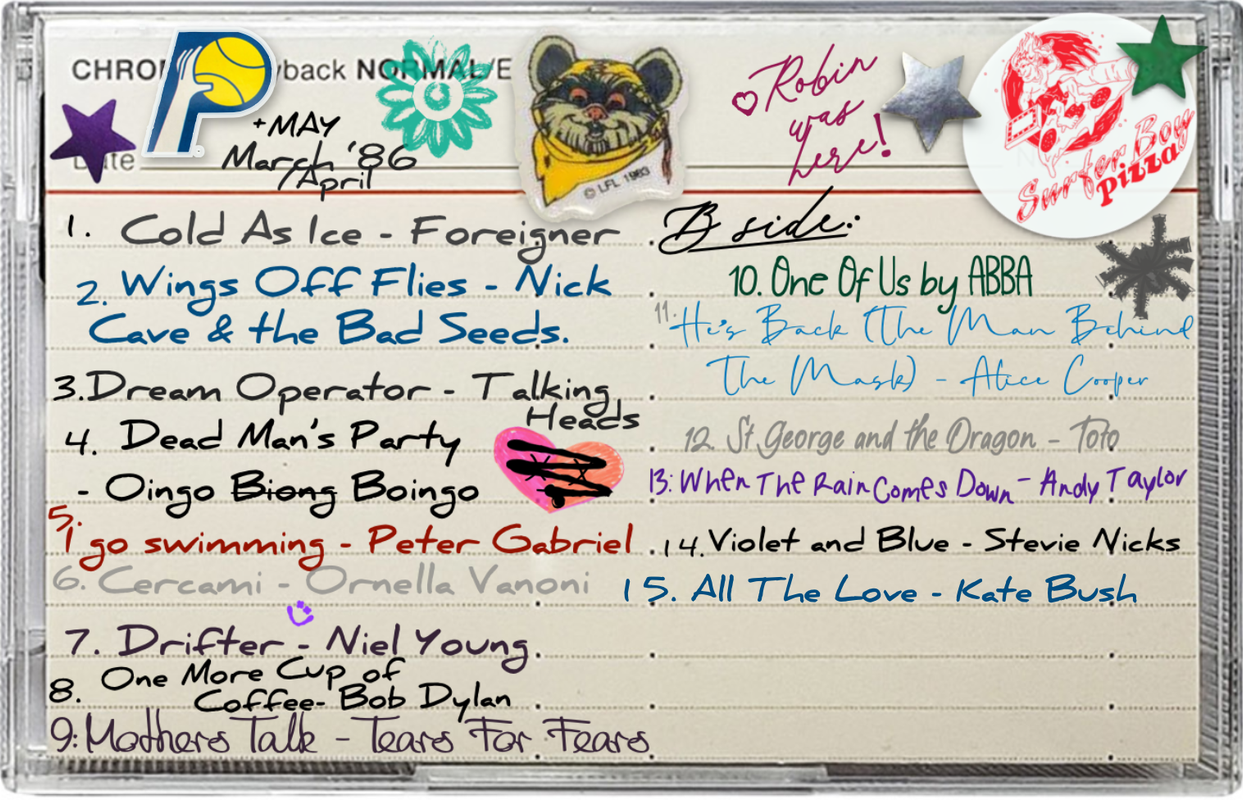 CHRO yback NORMAL/E
Date
+MAY
March '86
/April
© LFL 1983
Robin
was
here!
Surfer Boy
Pizza
1. Cold As Ice - Foreigner
2. Wings Off Flies - Nick
Cave & the Bad Seeds.
3. Dream Operator - Talking
Heads
4. Dead Man's Party
- Oingo Biong Boingo
5.
I go swimming - Peter Gabriel
6. Cercami - Ornella Vanoni
7. Drifter - Niel Young
8. One More Cup of
Coffee- Bob Dylan
9: Mothers Talk - Tears For Fears
B side:
10. One Of Us by ABBA
11. He's Back (The Man Behind
The Mask) - Alice Cooper
12. St. George and the Dragon - Toto
13: When The Rain Comes Down - Andy Taylor
14. Violet and Blue - Stevie Nicks
15. All The Love - Kate Bush